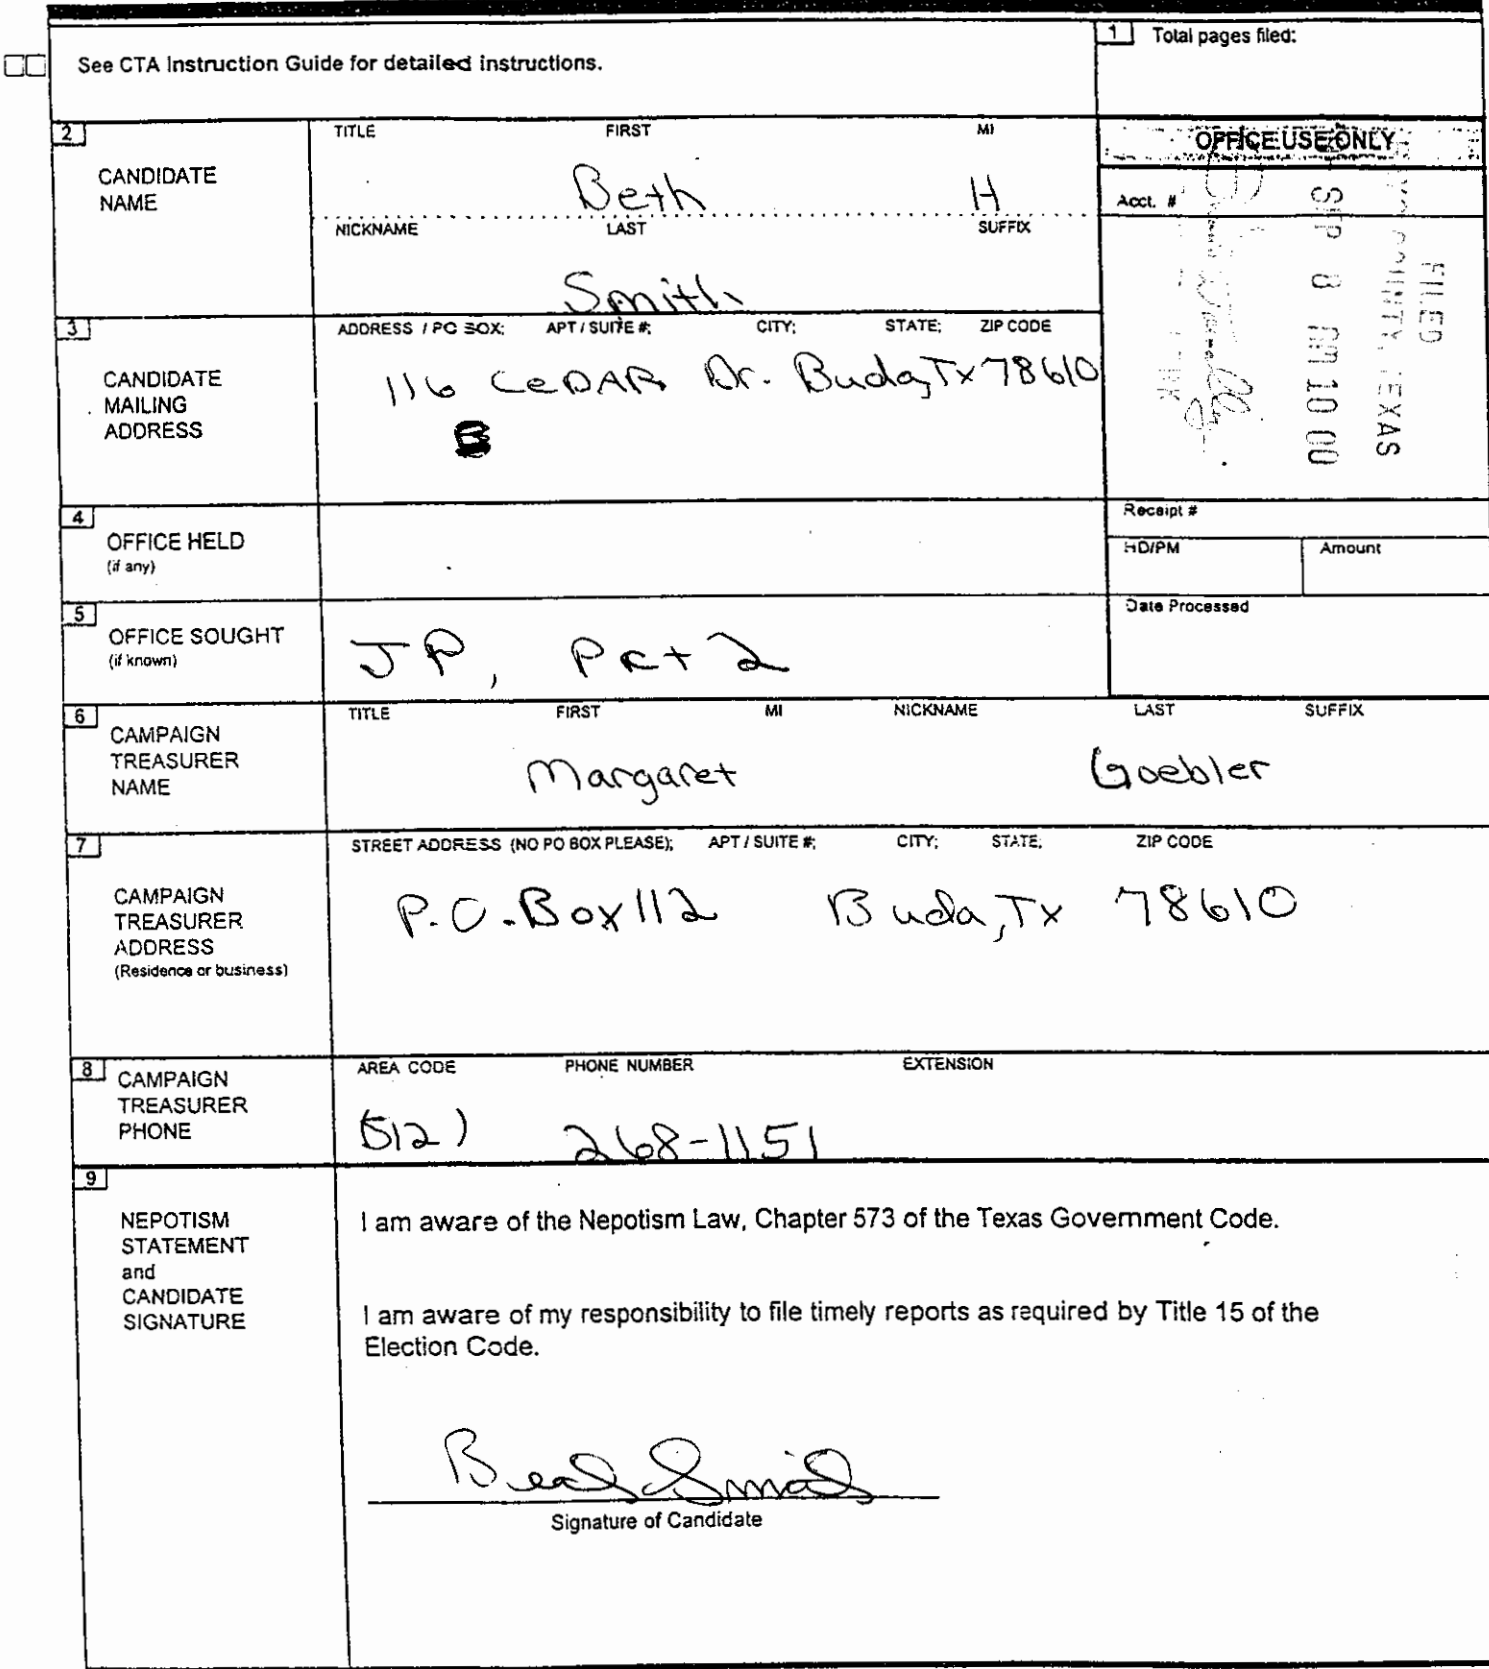 See CTA Instruction Guide for detailed instructions.
1 Total pages filed:
2 CANDIDATE NAME
TITLE FIRST MI
Beth H
NICKNAME LAST SUFFIX
Smith
OFFICE USE ONLY
Acct. #
FILED
COUNTY, TEXAS
SEP 8 AM 10 00
3 CANDIDATE MAILING ADDRESS
ADDRESS / PO BOX; APT / SUITE #; CITY; STATE; ZIP CODE
116 CeDAR Dr. Buda, Tx 78610
Receipt #
HD/PM Amount
Date Processed
4 OFFICE HELD
(if any)
5 OFFICE SOUGHT
(if known)
JP, Pct 2
6 CAMPAIGN TREASURER NAME
TITLE FIRST MI NICKNAME LAST SUFFIX
Margaret Goebler
7 CAMPAIGN TREASURER ADDRESS
(Residence or business)
STREET ADDRESS (NO PO BOX PLEASE); APT / SUITE #; CITY; STATE; ZIP CODE
P.O. Box 112 Buda, Tx 78610
8 CAMPAIGN TREASURER PHONE
AREA CODE PHONE NUMBER EXTENSION
(512) 268-1151
9 NEPOTISM STATEMENT and CANDIDATE SIGNATURE
I am aware of the Nepotism Law, Chapter 573 of the Texas Government Code.
I am aware of my responsibility to file timely reports as required by Title 15 of the
Election Code.
Beth Smith
Signature of Candidate